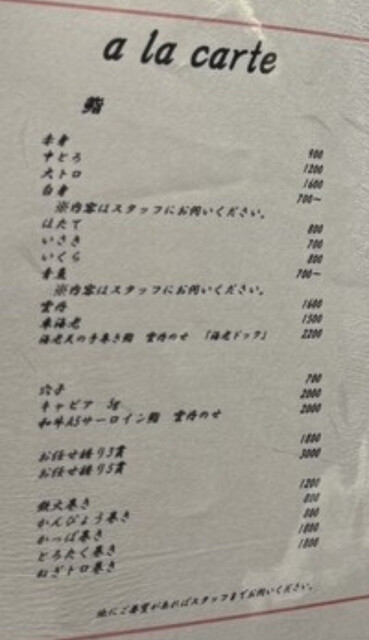 a la carte
鮨
赤身 900
中とろ 1200
大トロ 1600
白身 700〜
※内容はスタッフにお伺いください。
ほたて 800
いさき 700
いくら 800
青魚 700〜
※内容はスタッフにお伺いください。
雲丹 1600
車海老 1500
海老天の手巻き鮨 雲丹のせ 「海老ドック」 2200
穴子 700
キャビア 5g 2000
和牛A5サーロイン鮨 雲丹のせ 2000
お任せ握り3貫 1800
お任せ握り5貫 3000
鉄火巻き 1200
かんぴょう巻き 800
かっぱ巻き 800
とろたく巻き 1800
ねぎトロ巻き 1800
他にご要望があればスタッフまでお伺いください。